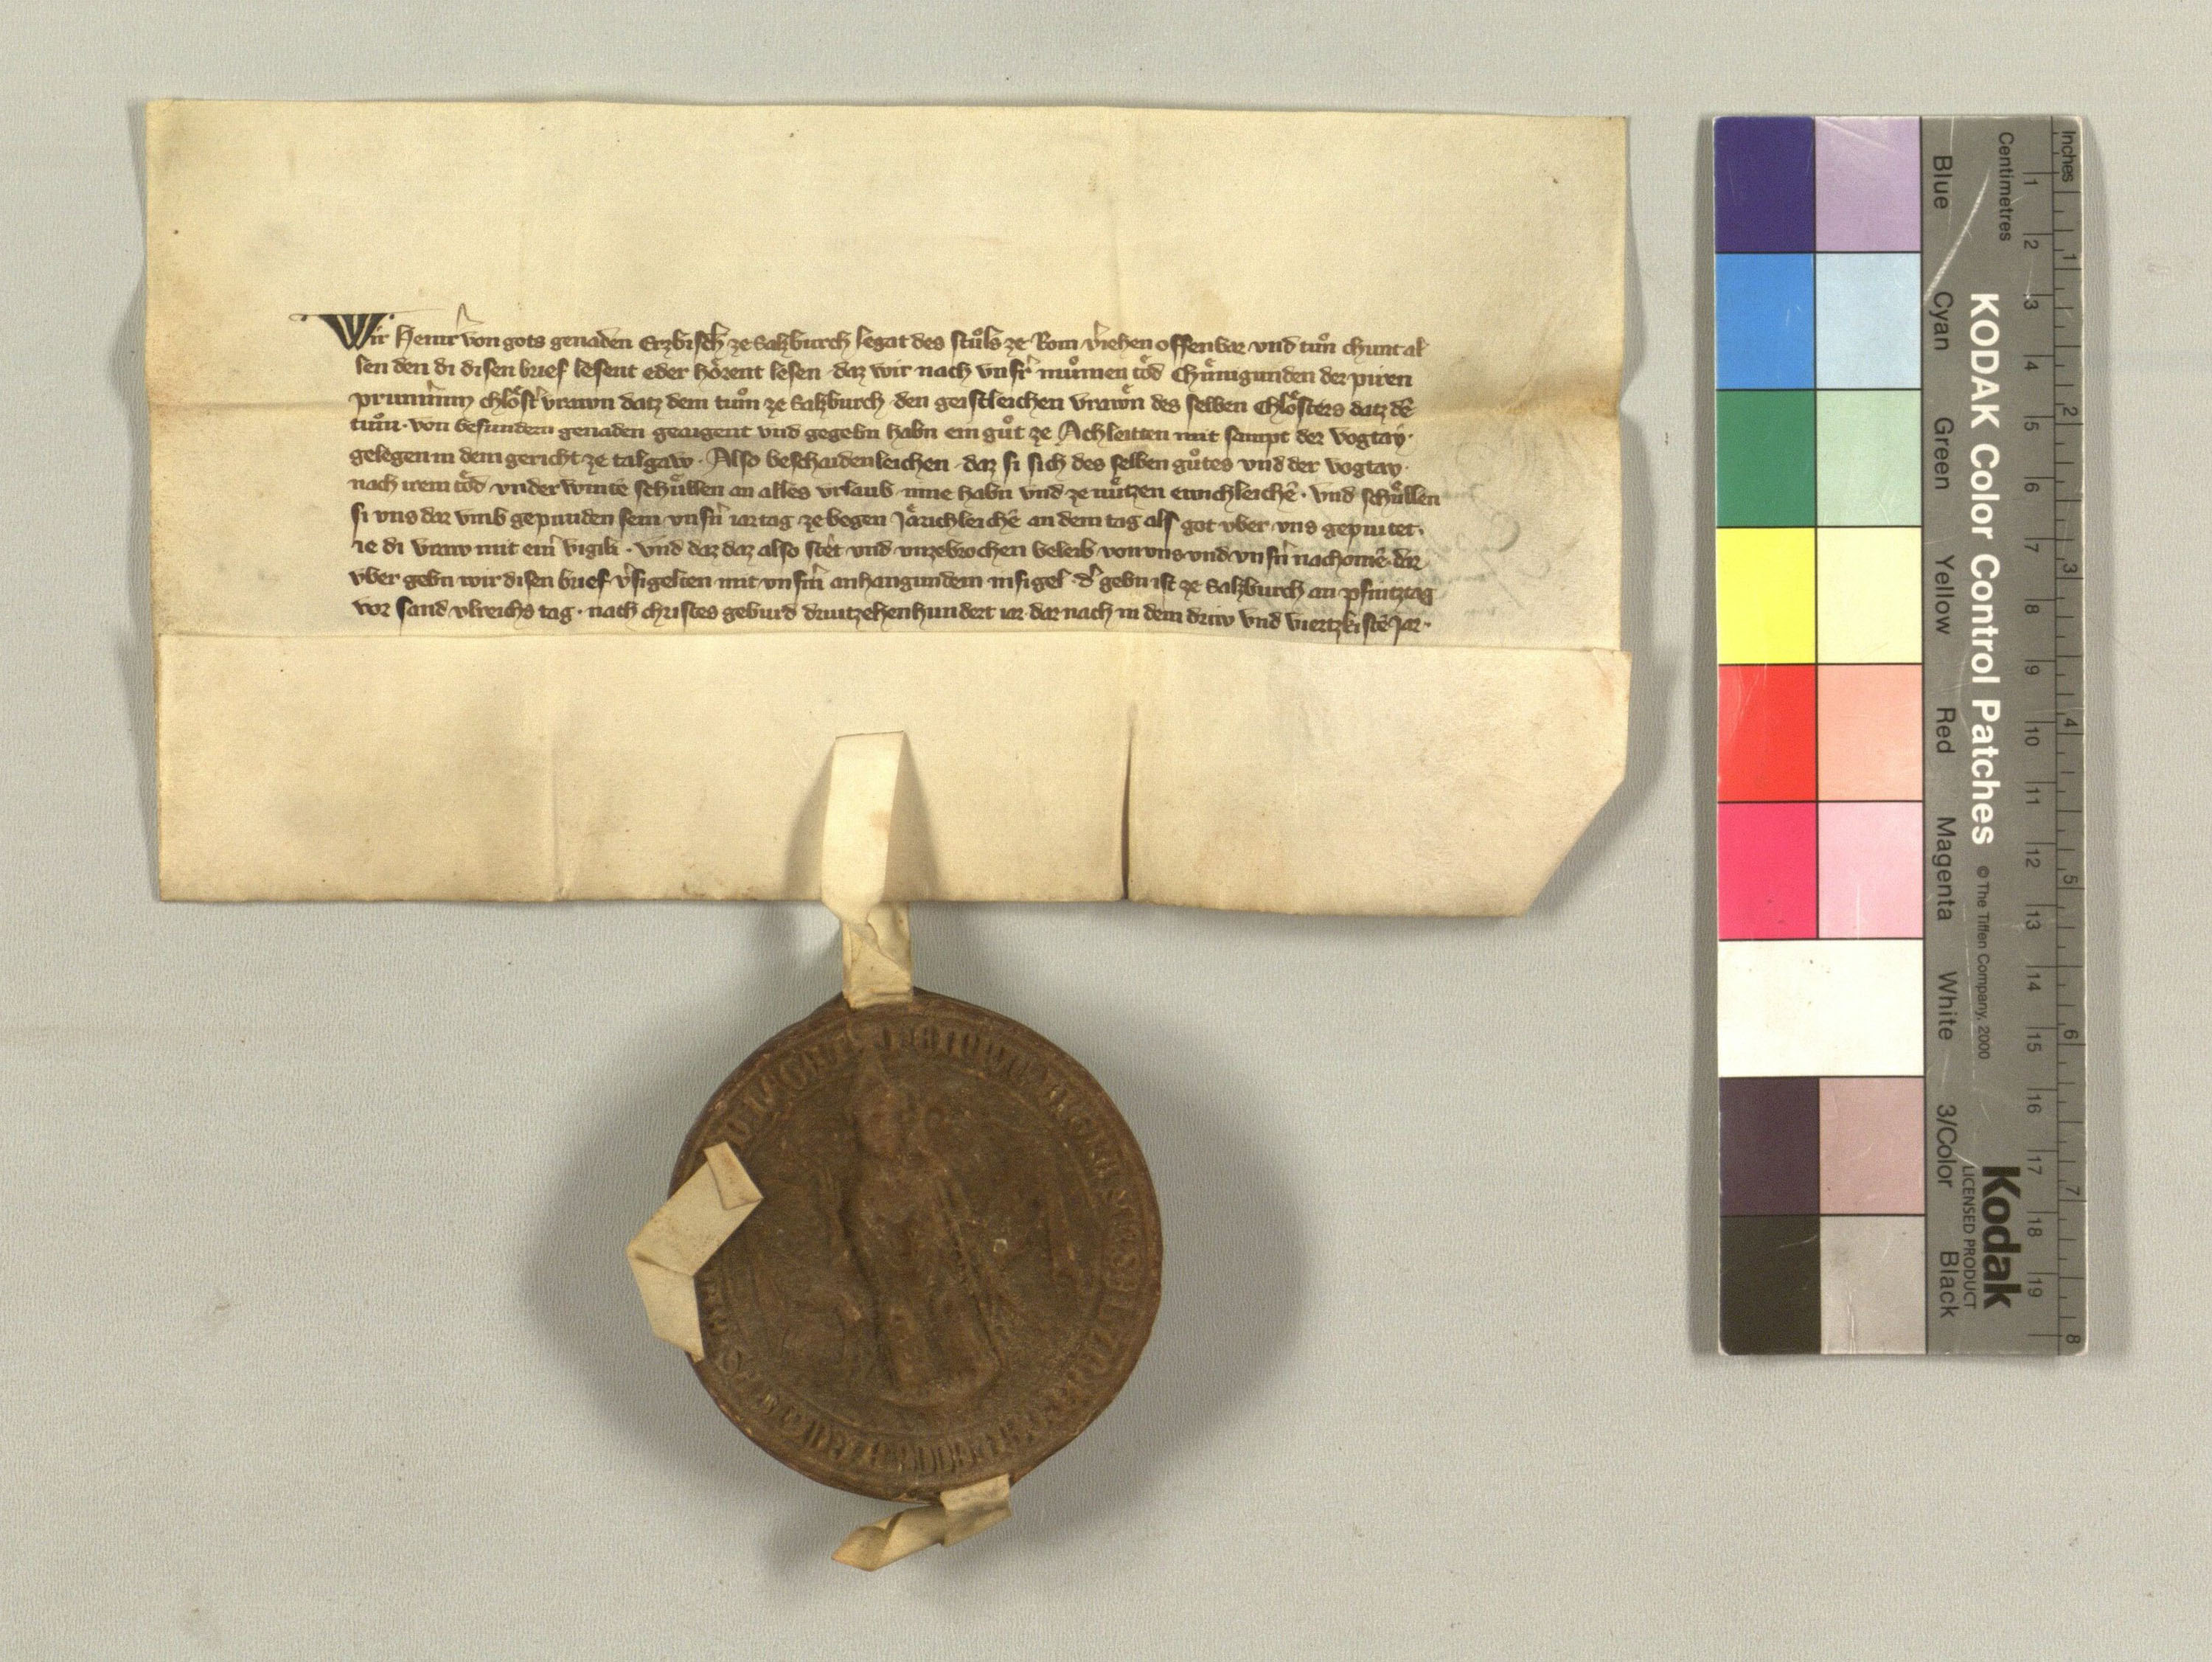 Wir Heinr̄ von gots genaden Erzbisch̄ ze Salzburch legat des stůls ze Rom v̄iehen offenbar vnd tůn chunt al
len den di disen brief lesent oder hoͤrent lesen · daz wir nach vnsr̄ můmen toͤd Chuͤnigunden der piren
prunnīn chloͤst̄vrawn datz dem tům ze Salzburch · den geistleichen vrawn des selben Chloͤsters datz dē
tům · von besundern genaden geaigent vnd gegebn habn ein gůt ze Achleitten mit sampt der vogtay ·
gelegen in dem gericht ze talgaw · Also beschaidenleichen · daz si sich des selben gůtes vnd der vogtay ·
nach irem toͤd vnderwinte schuͤllen an alles vrlaub inne habn vnd ze nuͤtzen ewichleichē · vnd schuͤllen
si vns dar vmb gepunden sein vnsn̄ iartag ze begen Jaͤrichleichē an dem tag als got vber vns gepiutet ·
ie di vraw mit ein̄ vigili · vnd daz daz also stet vnd vnzebrochen beleib von vns vnd vnsn̄ nachomē · dar
vber gebn wir disen brief v̄sigelten mit vnsm̄ anhangundem insigel · d̄ gebn ist ze Salzburch an pfintztag
vor sand vlreichs tag · nach christes geburd driutzehenhundert iar · dar nach in dem driw vnd viertzkistē Jar ·
Inches
Centimetres
1 2 3 4 5 6 7 8 9 10 11 12 13 14 15 16 17 18 19
1 2 3 4 5 6 7 8
KODAK Color Control Patches © The Tiffen Company, 2000
Kodak
LICENSED PRODUCT
Blue Cyan Green Yellow Red Magenta White 3/Color Black